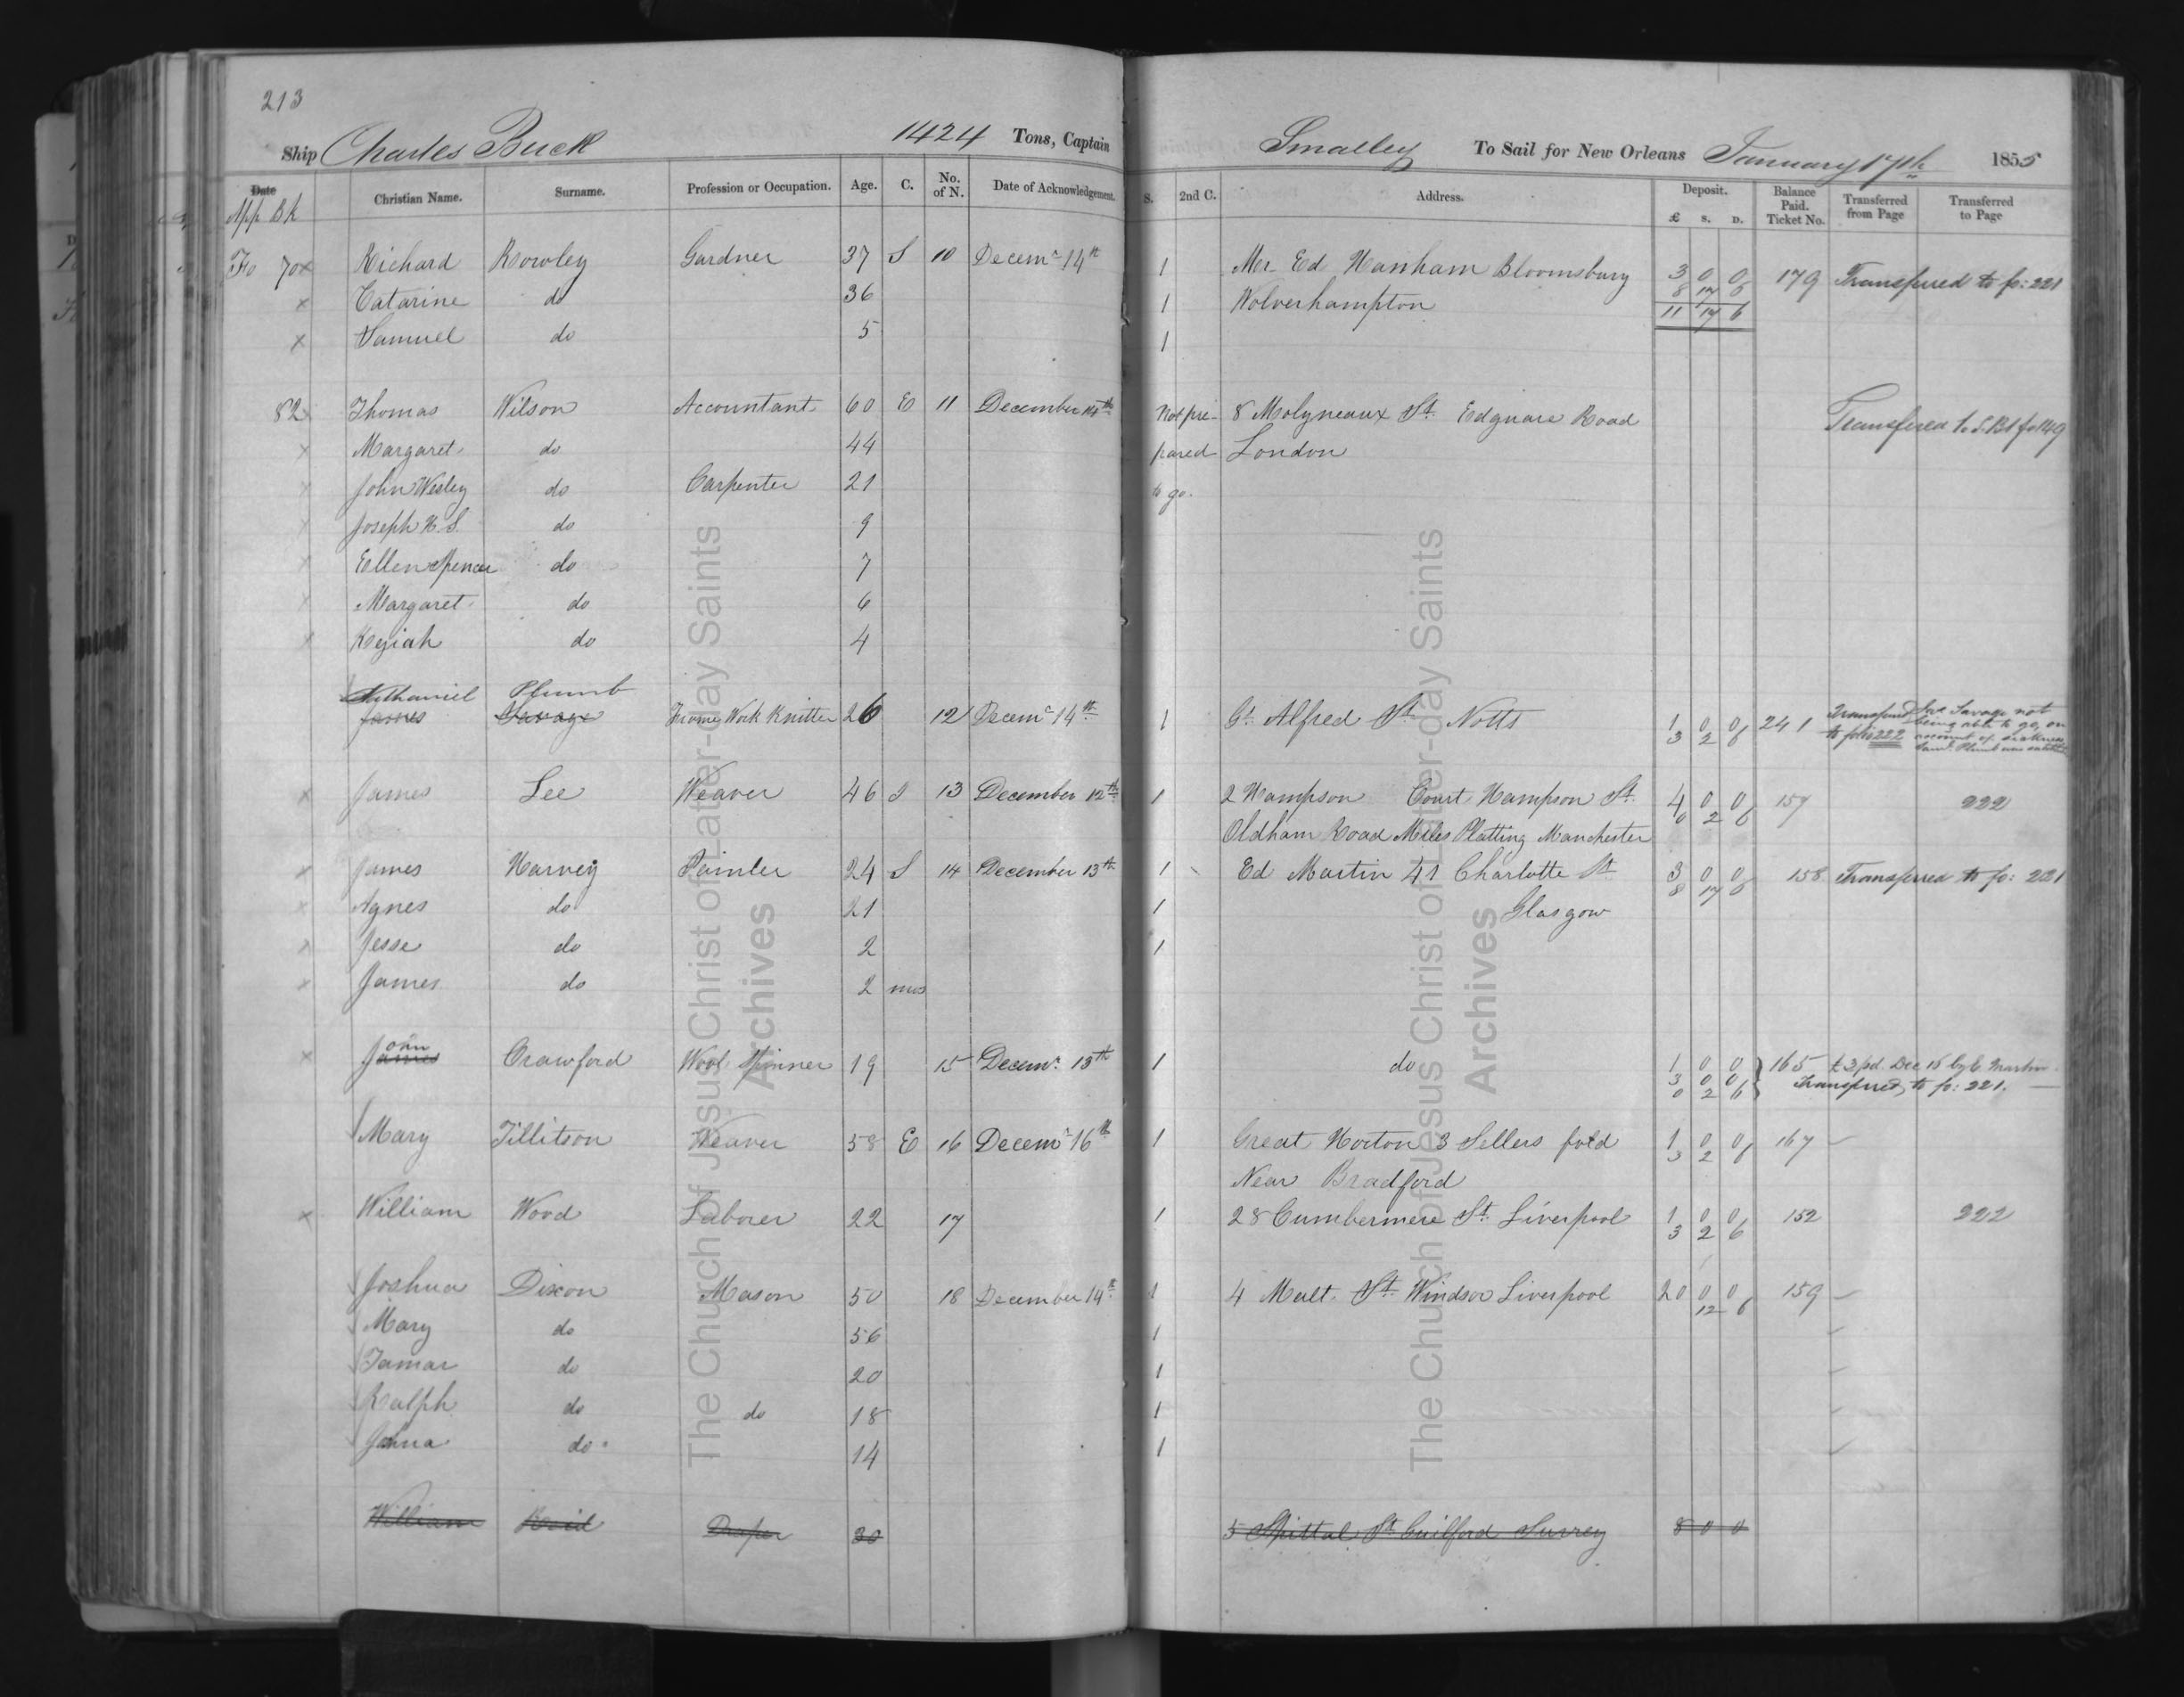 213
Ship Charles Buck 1424 Tons, Captain Smalley To Sail for New Orleans January 17th 1855
Date App Bk Christian Name. Surname. Profession or Occupation. Age. C. No. of N. Date of Acknowledgement. S. 2nd C. Address. Deposit. £ S. D. Balance Paid. Ticket No. Transferred from Page Transferred to Page
Fo 70 x Richard Rowley Gardner 37 S 10 Decemr 14th 1 Mr Ed Hanham Bloomsbury 3 0 0 179 Transferred to fo: 221
x Catarine do 36 1 Wolverhampton 8 17 6
11 17 6
x Samuel do 5 1
82 x Thomas Wilson Accountant 60 E 11 December 14th Not pre- 8 Molyneaux St. Edgware Road Transfered to S.Bk fo 149
x Margaret do 44 pared London
x John Wesley do Carpenter 21 to go.
x Joseph H. S. do 9
x Ellen Spencer do 7
x Margaret do 6
x Keziah do 4
Nathaniel Plumb
James Savage Frame Work Knitter 26 12 Decemr 14th 1 Gt. Alfred St Notts 1 0 0 241 Transferred to folio 222 Jas Savage not being able to go, on account of sickness
3 2 6
x James Lee Weaver 46 S 13 December 12th 1 2 Hampson Court Hampson St. 4 0 0 157 222
Oldham Road Miles Platting Manchester 0 2 6
x James Harvey Painter 24 S 14 December 13th 1 Ed Martin 41 Charlotte St 3 0 0 158 Transferred to fo: 221
x Agnes do 21 1 Glasgow 8 17 6
x Jesse do 2 1
x James do 2 mos
x John James Crawford Wool Spinner 19 15 Decemr. 13th 1 do 1 0 0 165 £3 pd. Dec 15 by E. Martin
3 0 0 Transferred to fo: 221.
0 2 6
Mary Tillitson Weaver 58 E 16 Decemr 16th 1 Great Horton 3 Sellers fold 1 0 0 167
Near Bradford 3 2 6
x William Wood Laborer 22 17 1 28 Cumbermere St. Liverpool 1 0 0 152 222
3 2 6
Joshua Dixon Mason 50 18 December 14th 1 4 Malt. St. Windsor Liverpool 20 0 0 159
12 6
Mary do 56 1
Tamar do 20 1
Ralph do do 18 1
do 14 1
William Reid Draper 20 5 Spittal St Guilford Surrey 8 0 0
The Church of Jesus Christ of Latter-day Saints
Archives
The Church of Jesus Christ of Latter-day Saints
Archives